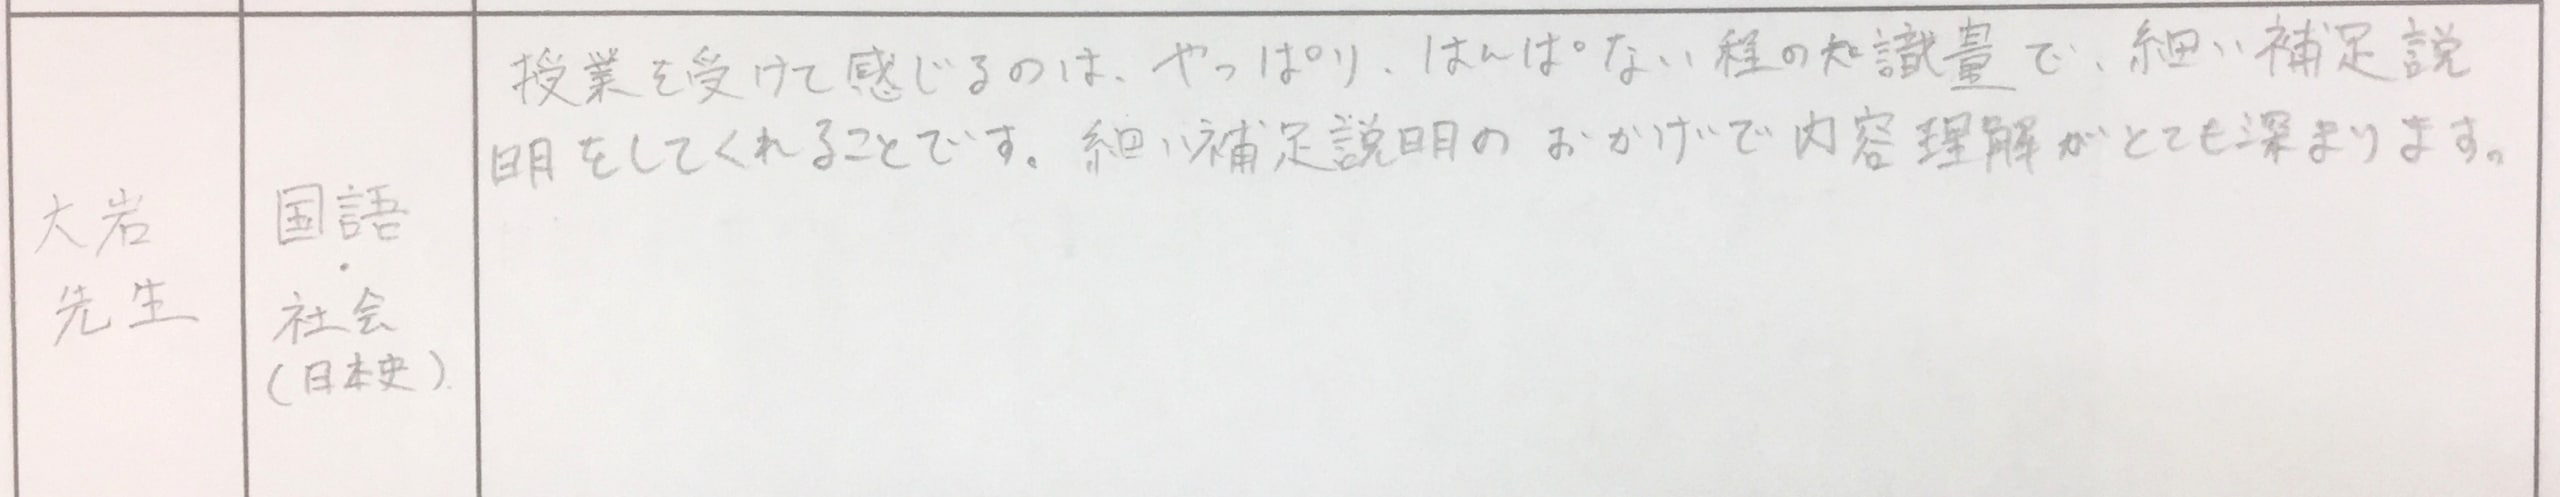 大岩
先生
国語
・
社会
(日本史)
授業を受けて感じるのは、やっぱり、はんぱない程の知識量で、細い補足説
明をしてくれることです。細い補足説明のおかげで内容理解がとても深まります。